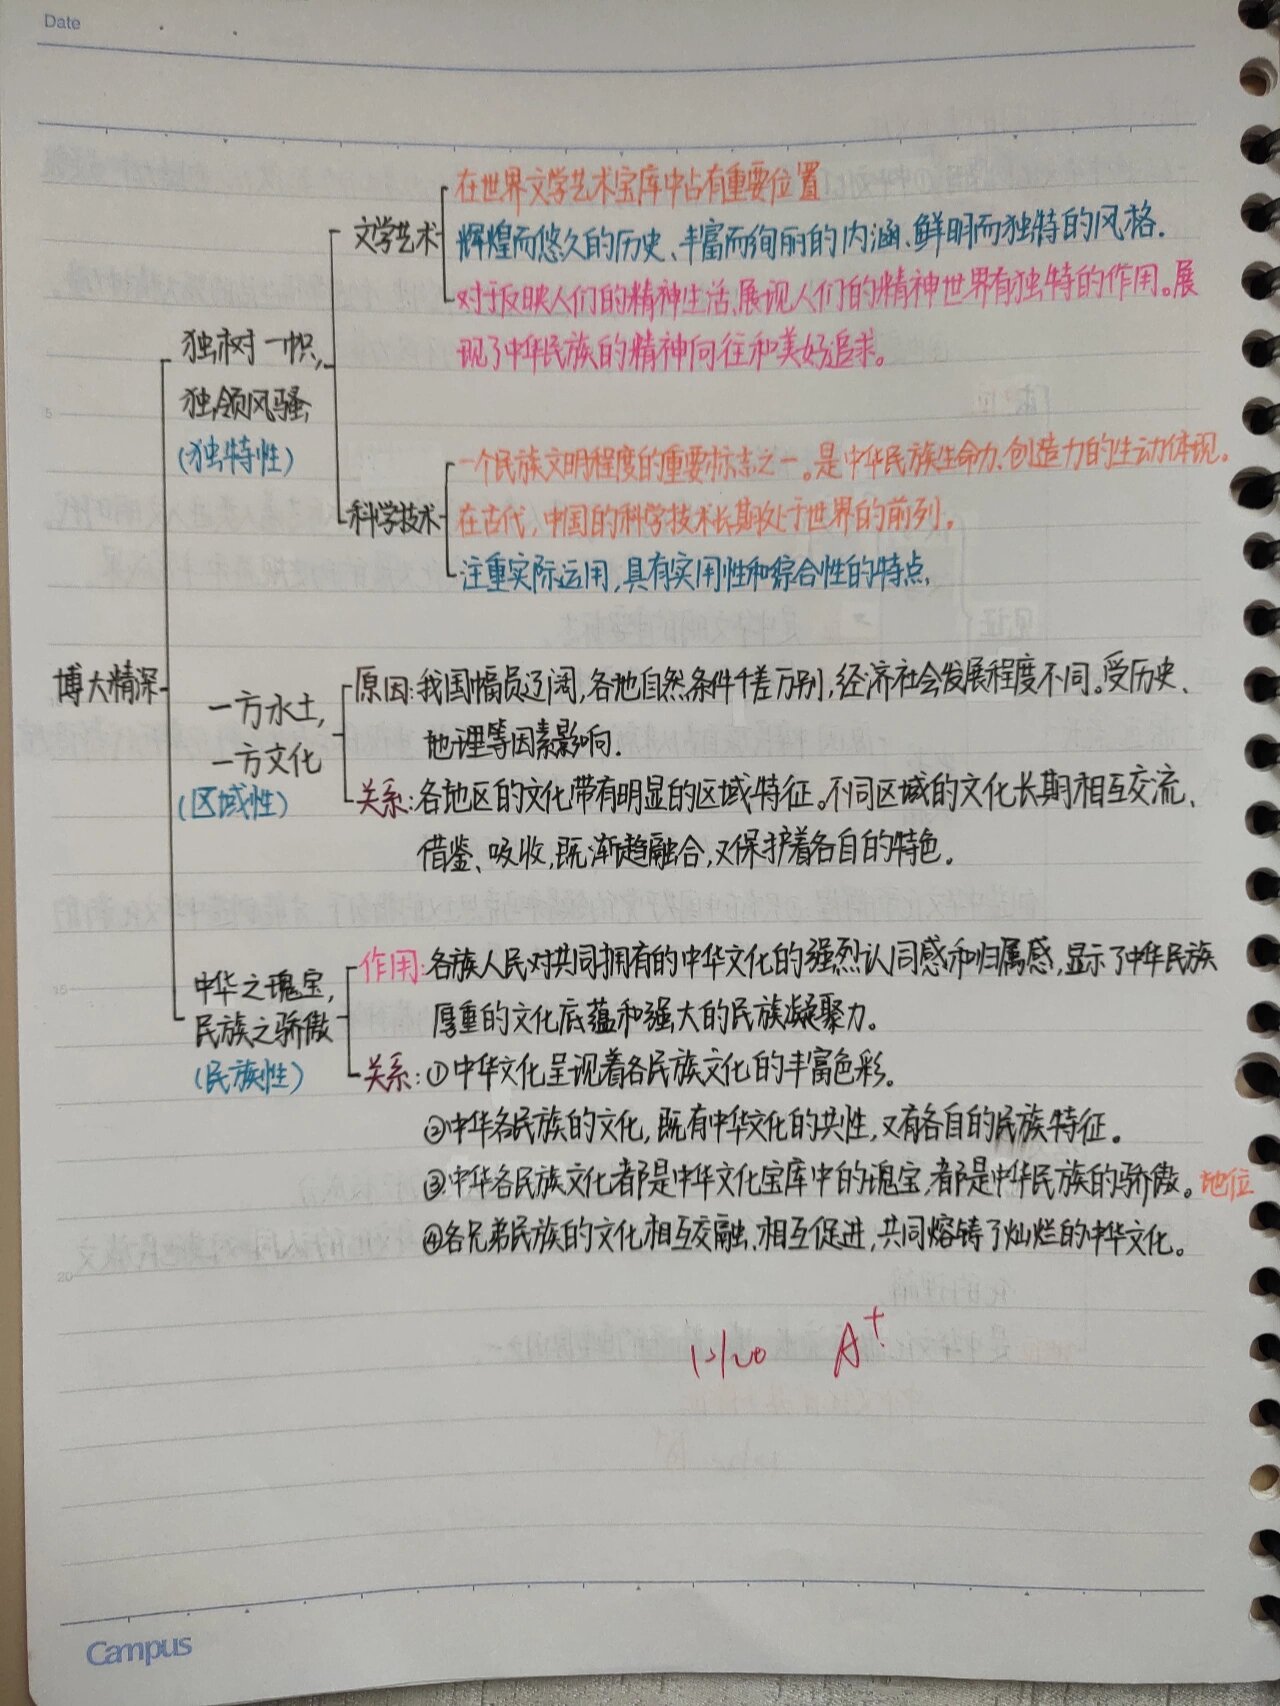 Date
在世界文学艺术宝库中占有重要位置
文学艺术
辉煌而悠久的历史、丰富而绚丽的内涵、鲜明而独特的风格.
对于反映人们的精神生活、展现人们的精神世界有独特的作用。展
现了中华民族的精神向往和美好追求。
独树一帜,
独领风骚
(独特性)
一个民族文明程度的重要标志之一。是中华民族生命力、创造力的生动体现。
科学技术
在古代，中国的科学技术长期处于世界的前列。
注重实际运用,具有实用性和综合性的特点,
博大精深
一方水土,
一方文化
(区域性)
原因:我国幅员辽阔,各地自然条件千差万别,经济社会发展程度不同。受历史、
地理等因素影响.
关系:各地区的文化带有明显的区域特征。不同区域的文化长期相互交流、
借鉴、吸收,既渐趋融合,又保护着各自的特色.
中华之瑰宝,
民族之骄傲
(民族性)
作用:各族人民对共同拥有的中华文化的强烈认同感和归属感,显示了中华民族
厚重的文化底蕴和强大的民族凝聚力。
关系:①中华文化呈现着各民族文化的丰富色彩。
②中华各民族的文化,既有中华文化的共性,又有各自的民族特征。
③中华各民族文化都是中华文化宝库中的瑰宝,都是中华民族的骄傲。地位
④各兄弟民族的文化相互交融、相互促进,共同熔铸了灿烂的中华文化。
A+
5
15
20
Campus